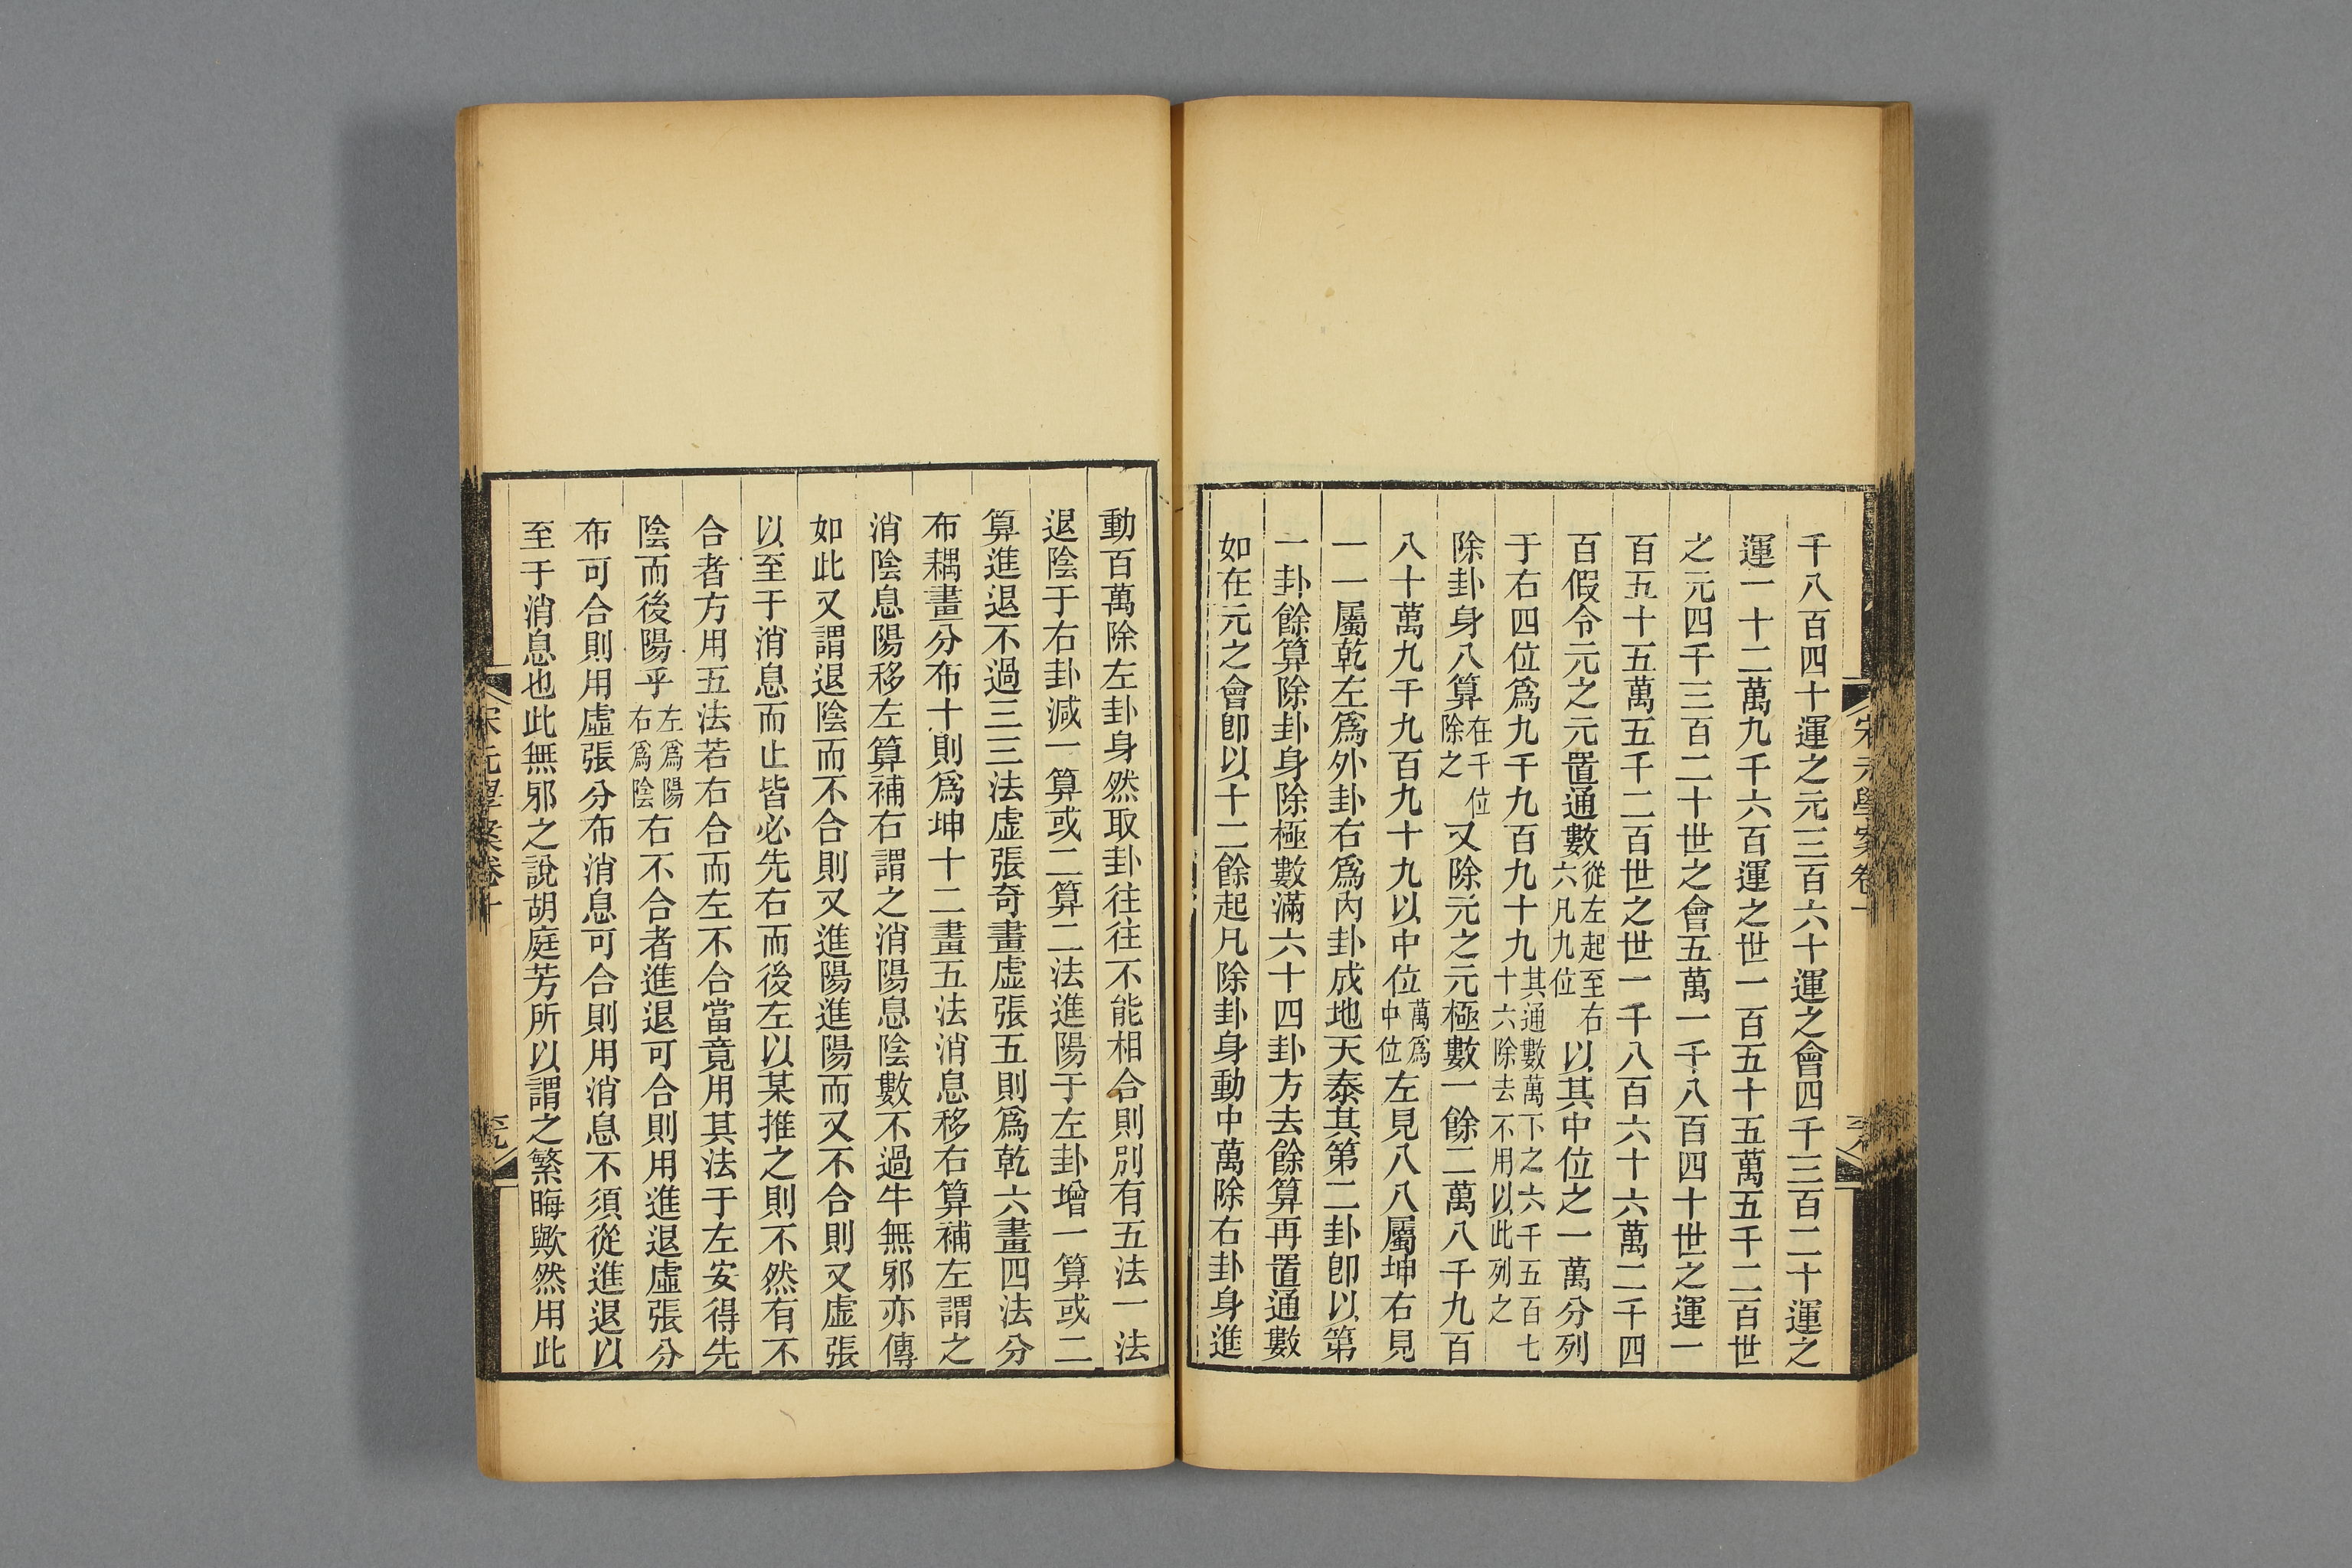 千八百四十運之元三百六十運之會四千三百二十運之
運一十二萬九千六百運之世一百五十五萬五千二百世
之元四千三百二十世之會五萬一千八百四十世之運一
百五十五萬五千二百世之世一千八百六十六萬二千四
百假令元之元置通數從左起至右六凡九位以其中位之一萬分列
于右四位爲九千九百九十九其通數萬下之六千五百七十六除去不用以此列之
除卦身八算在千位除之又除元之元極數一餘二萬八千九百
八十萬九千九百九十九以中位萬爲中位左見八八屬坤右見
一一屬乾左爲外卦右爲內卦成地天泰其第二卦卽以第
一卦餘算除卦身除極數滿六十四卦方去餘算再置通數
如在元之會卽以十二餘起凡除卦身動中萬除右卦身進
動百萬除左卦身然取卦往往不能相合則別有五法一法
退陰于右卦減一算或二算二法進陽于左卦增一算或二
算進退不過三三法虛張奇畫虛張五則爲乾六畫四法分
布耦畫分布十則爲坤十二畫五法消息移右算補左謂之
消陰息陽移左算補右謂之消陽息陰數不過半無邪亦傳
如此又謂退陰而不合則又進陽進陽而又不合則又虛張
以至于消息而止皆必先右而後左以某推之則不然有不
合者方用五法若右合而左不合當竟用其法于左安得先
陰而後陽乎左爲陽右爲陰右不合者進退可合則用進退虛張分
布可合則用虛張分布消息可合則用消息不須從進退以
至于消息也此無邪之說胡庭芳所以謂之繁晦歟然用此
宋元學案卷十